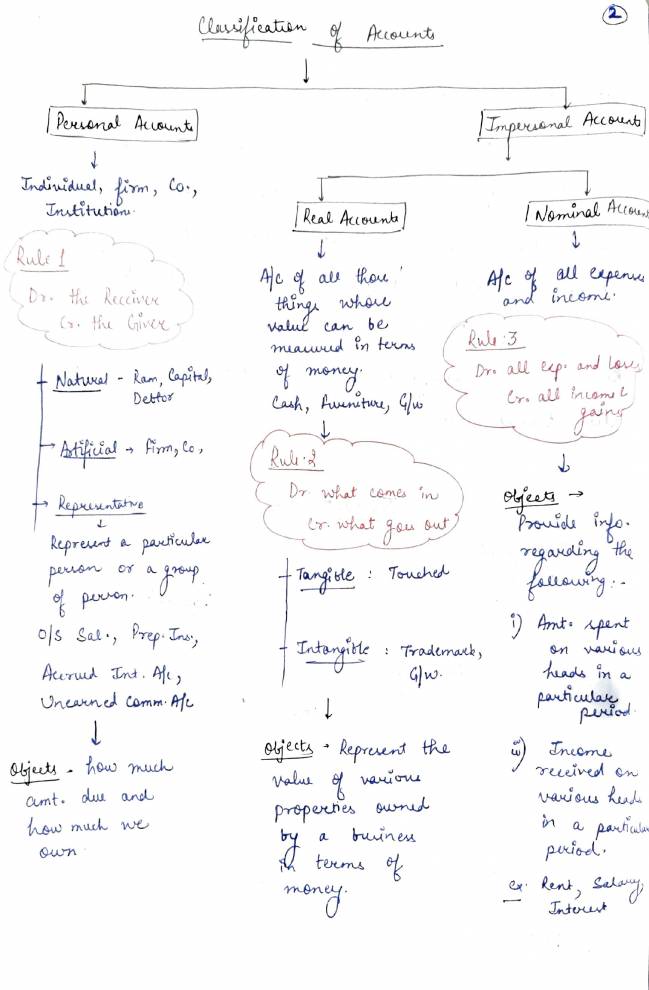 2
Classification of Accounts
Personal Accounts
Individual, firm, Co.,
Institution.
Rule 1
Dr. the Receiver
Cr. the Giver
Natural - Ram, Capital,
Debtor
Artificial → Firm, Co,
Representative
Represent a particular
person or a group
of person.
O/S Sal., Prep. Ins.,
Accrued Int. A/c,
Unearned Comm. A/c
Objects - how much
amt. due and
how much we
own
Impersonal Accounts
Real Accounts
A/c of all those
things whose
value can be
measured in terms
of money.
Cash, Furniture, G/w
Rule:2
Dr. what comes in
Cr. what goes out
Tangible : Touched
Intangible : Trademark,
G/w.
Objects - Represent the
value of various
properties owned
by a business
in terms of
money.
Nominal Account
A/c of all expenses
and income.
Rule:3
Dr. all exp. and loses
Cr. all income &
gains
Objects →
Provide info.
regarding the
following:-
i) Amt. spent
on various
heads in a
particular
period.
ii) Income
received on
various heads
in a particular
period.
ex. Rent, Salary,
Interest